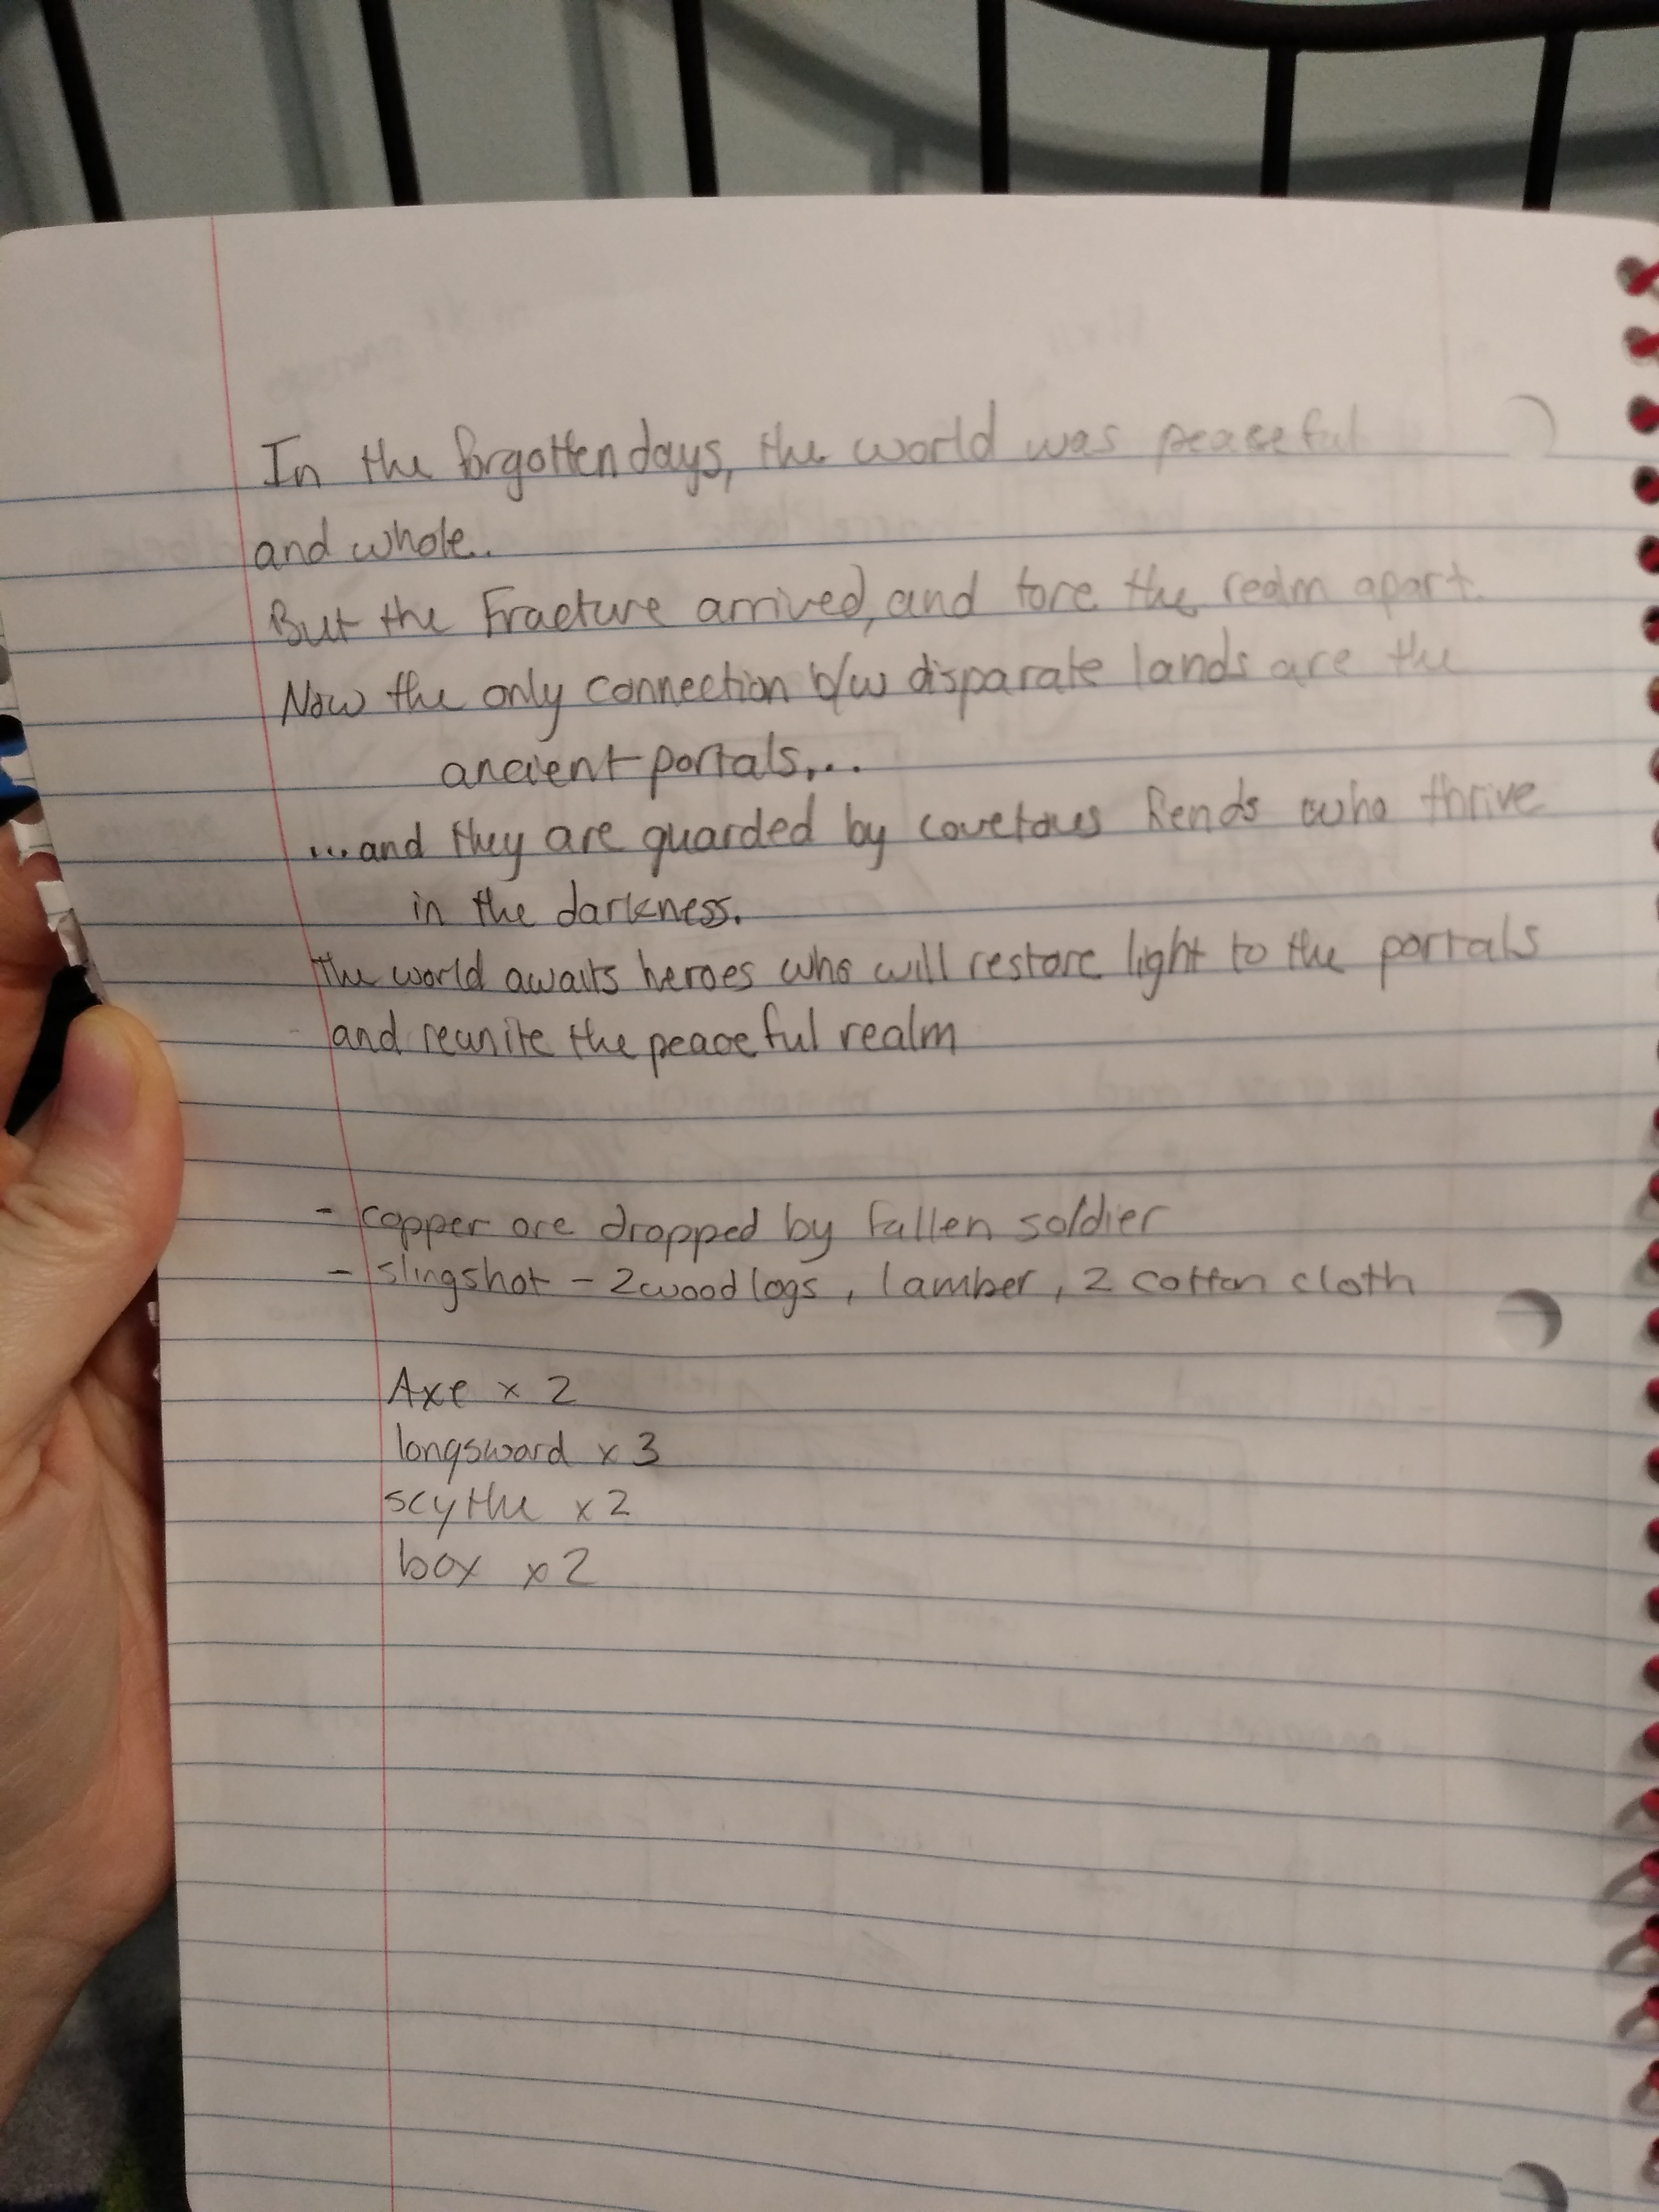 In the forgotten days, the world was peaceful
and whole..
But the Fracture arrived, and tore the realm apart.
Now the only connection b/w disparate lands are the
ancient portals,...
...and they are guarded by covetous fiends who thrive
in the darkness.
The world awaits heroes who will restore light to the portals
and reunite the peaceful realm
- copper ore dropped by fallen soldier
- slingshot - 2 wood logs, 1 amber, 2 cotton cloth
Axe x 2
longsword x 3
scythe x 2
box x 2